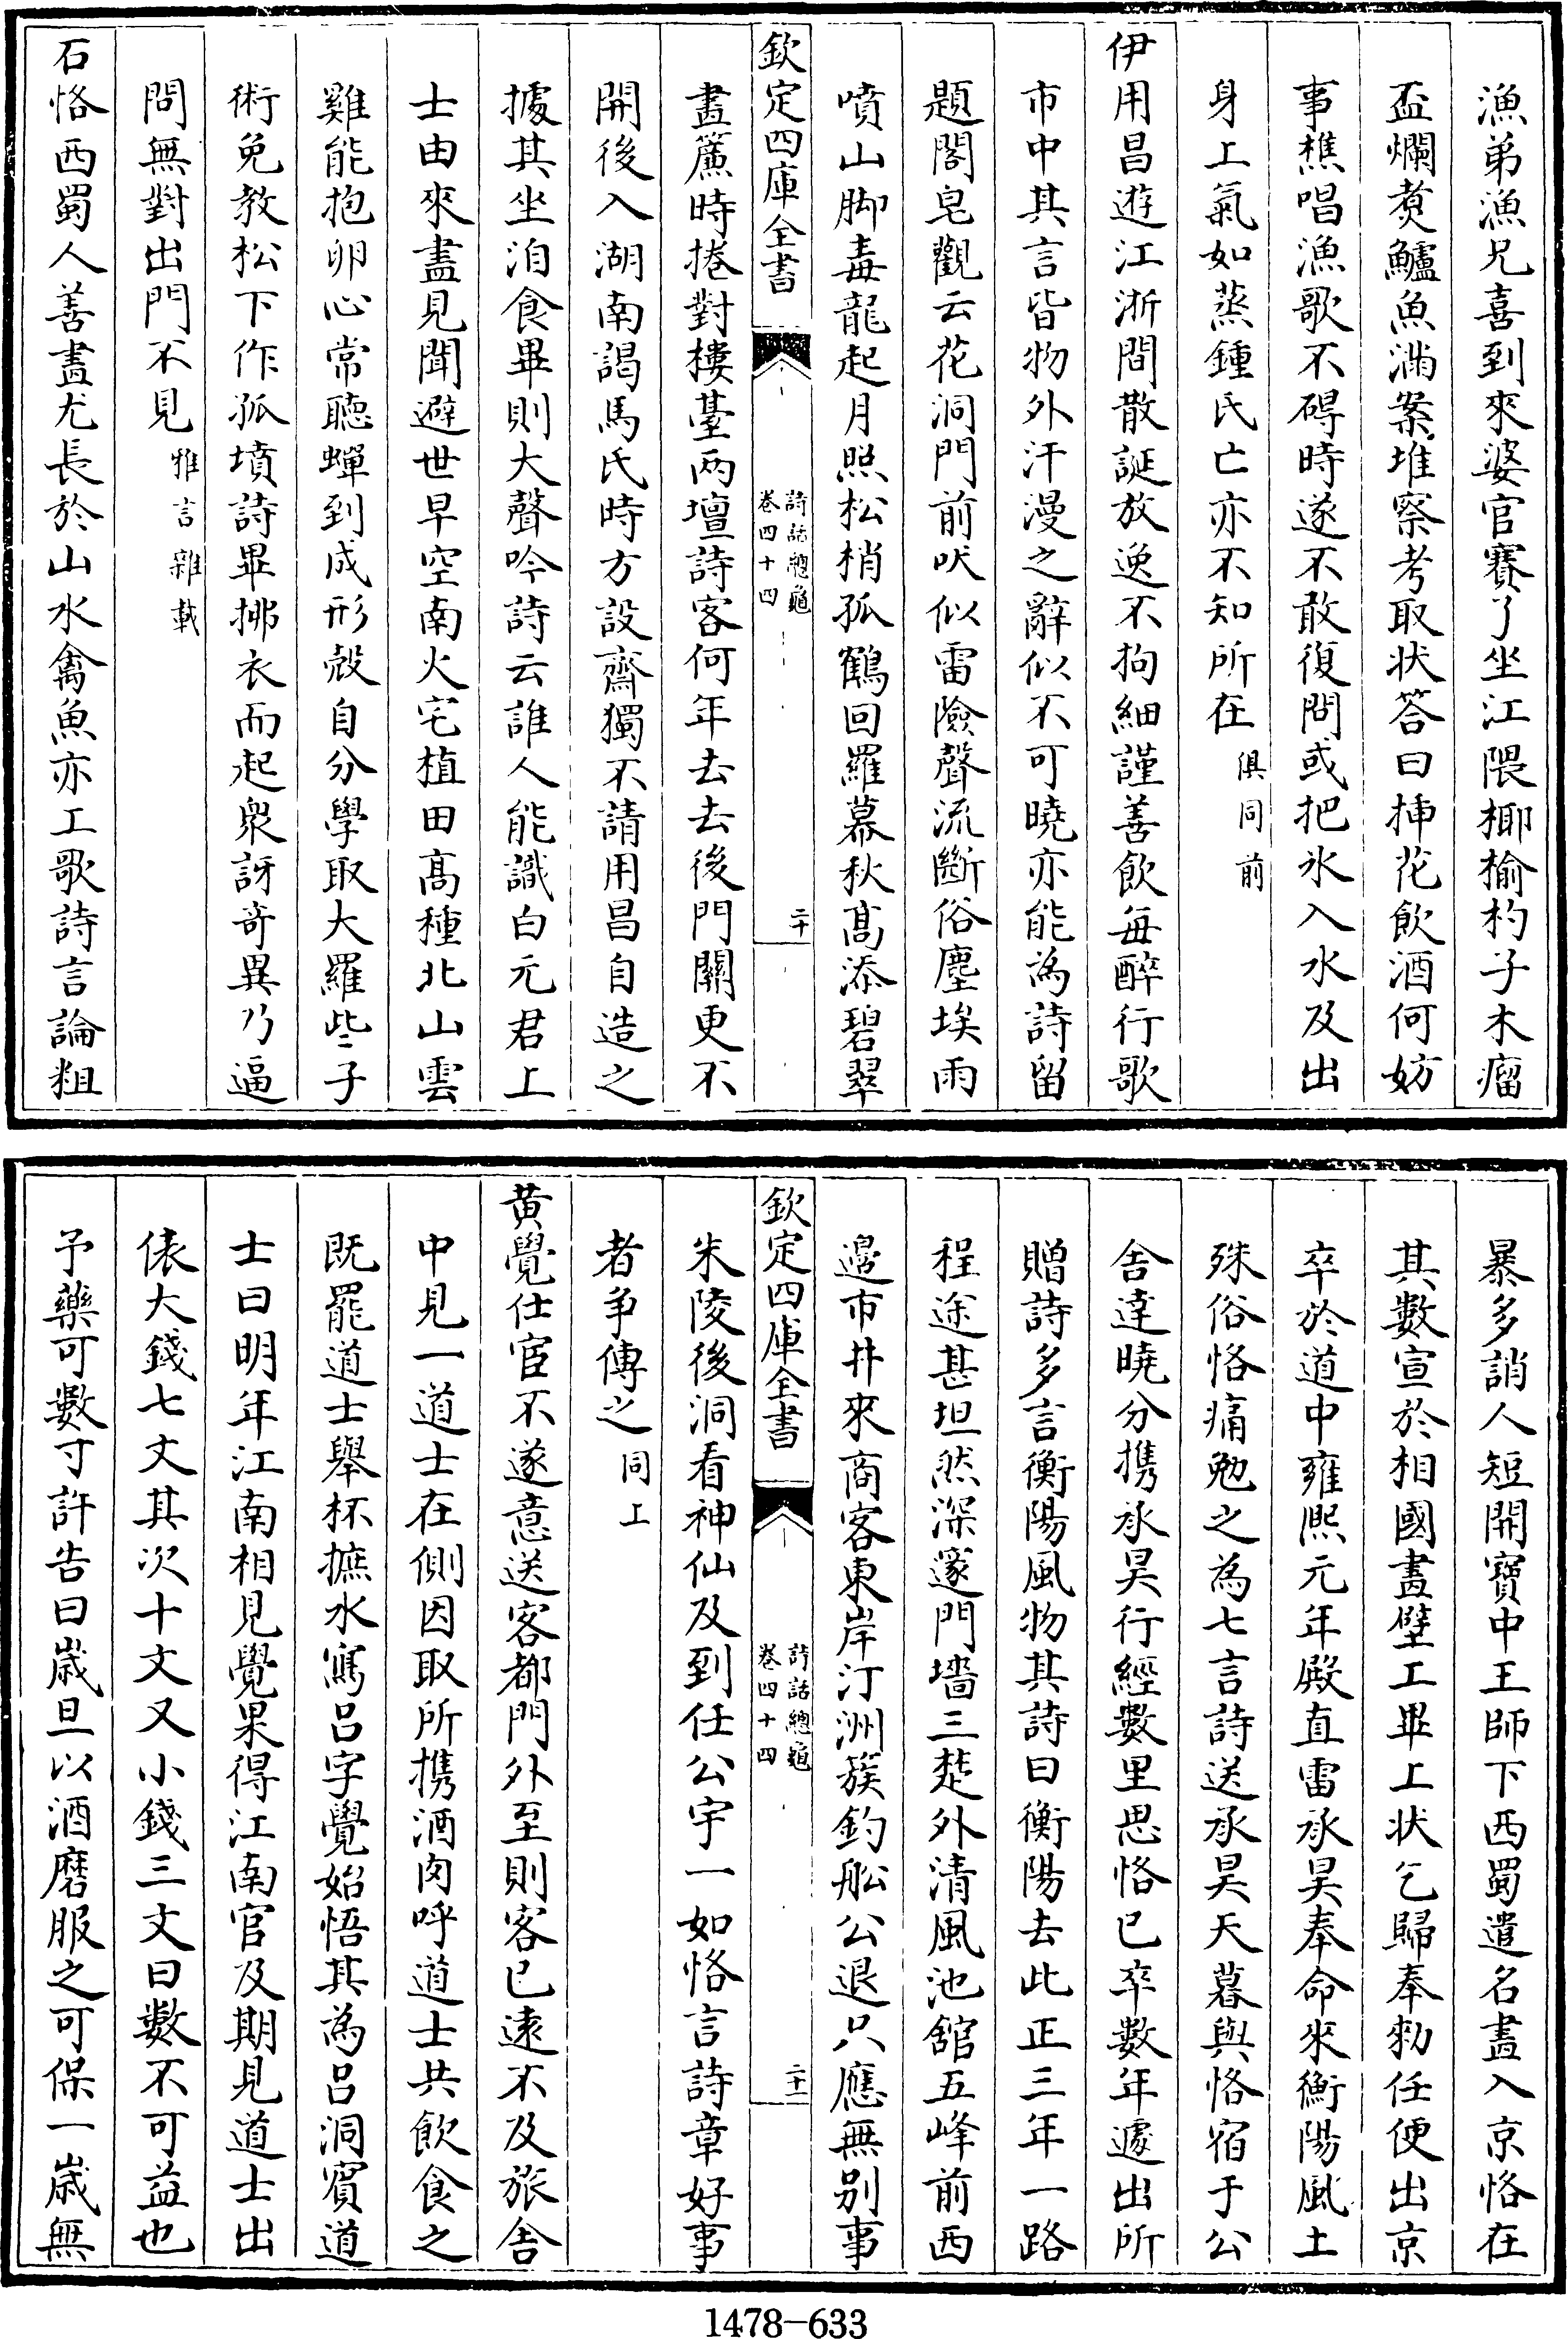 漁弟漁兄喜到來婆官賽了坐江隈椰榆杓子木瘤
盃爛煑鱸魚滿案堆察考取状答曰揷花飲酒何妨
事樵唱漁歌不碍時遂不敢復問或把氷入水及出
身上氣如蒸鍾氏亡亦不知所在俱同前
伊用昌遊江浙間散誕放逸不拘細謹善飲每醉行歌
市中其言皆物外汗漫之辭似不可曉亦能為詩留
題閣皂觀云花洞門前吠似雷險聲流斷俗塵埃雨
噴山脚毒龍起月照松梢孤鶴回羅幕秋髙添碧翠
欽定四庫全書
詩話總龜
卷四十四
二十
畫簾時捲對樓臺兩壇詩客何年去去後門關更不
開後入湖南謁馬氏時方設齋獨不請用昌自造之
據其坐洎食畢則大聲吟詩云誰人能識白元君上
士由來盡見聞避世早空南火宅植田髙種北山雲
雞能抱卵心常聽蟬到成形殼自分學取大羅些子
術免教松下作孤墳詩畢拂衣而起衆訝奇異乃逼
問無對出門不見雅言雜載
石恪西蜀人善畫尤長於山水禽魚亦工歌詩言論粗
暴多誚人短開寶中王師下西蜀遣名畫入京恪在
其數宣於相國畫壁工畢上状乞歸奉勑任便出京
卒於道中雍熙元年殿直雷承昊奉命來衡陽風土
殊俗恪痛勉之為七言詩送承昊天暮與恪宿于公
舎達曉分携承昊行經數里思恪已卒數年遽出所
贈詩多言衡陽風物其詩曰衡陽去此正三年一路
程途甚坦然深邃門墻三楚外清風池舘五峰前西
邊市井來商客東岸汀洲簇釣船公退只應無别事
欽定四庫全書
詩話總龜
卷四十四
二十一
朱陵後洞看神仙及到任公宇一如恪言詩章好事
者争傳之同上
黄覺仕宦不遂意送客都門外至則客已遠不及旅舎
中見一道士在側因取所携酒肉呼道士共飲食之
既罷道士舉杯摭水寫吕字覺始悟其為吕洞賓道
士曰明年江南相見覺果得江南官及期見道士出
俵大錢七文其次十文又小錢三文曰數不可益也
予藥可數寸許告曰嵗旦以酒磨服之可保一嵗無
1478-633